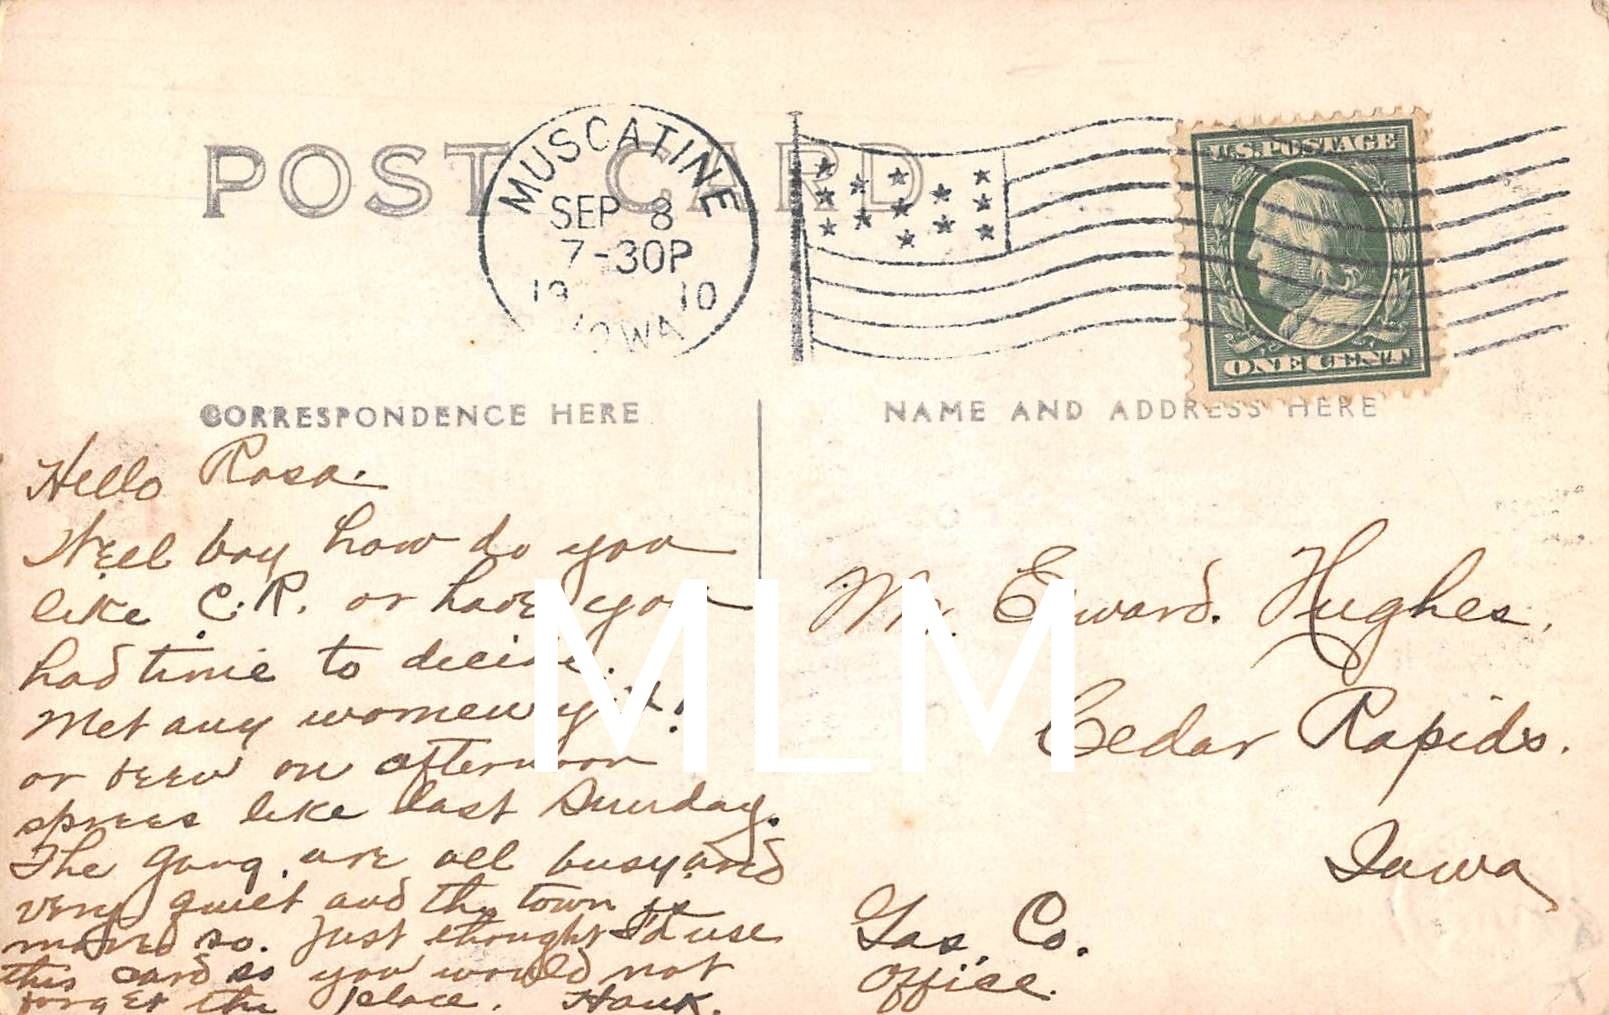 POST CARD
MUSCATINE
SEP 8
7-30P
1910
IOWA
U.S. POSTAGE
ONE CENT
CORRESPONDENCE HERE
NAME AND ADDRESS HERE
Hello Rasa.
Well boy how do you
like C.R. or have you
had time to decide.
Met any women yet!
or been on afternoon
sprees like last Sunday.
The gang are all busy and
very quiet and the town is
more so. Just thought I'd use
this card so you would not
forget the place. Hank.
Mr. Edward. Hughes.
Cedar Rapids.
Iowa
Gas. Co.
office.
MLM